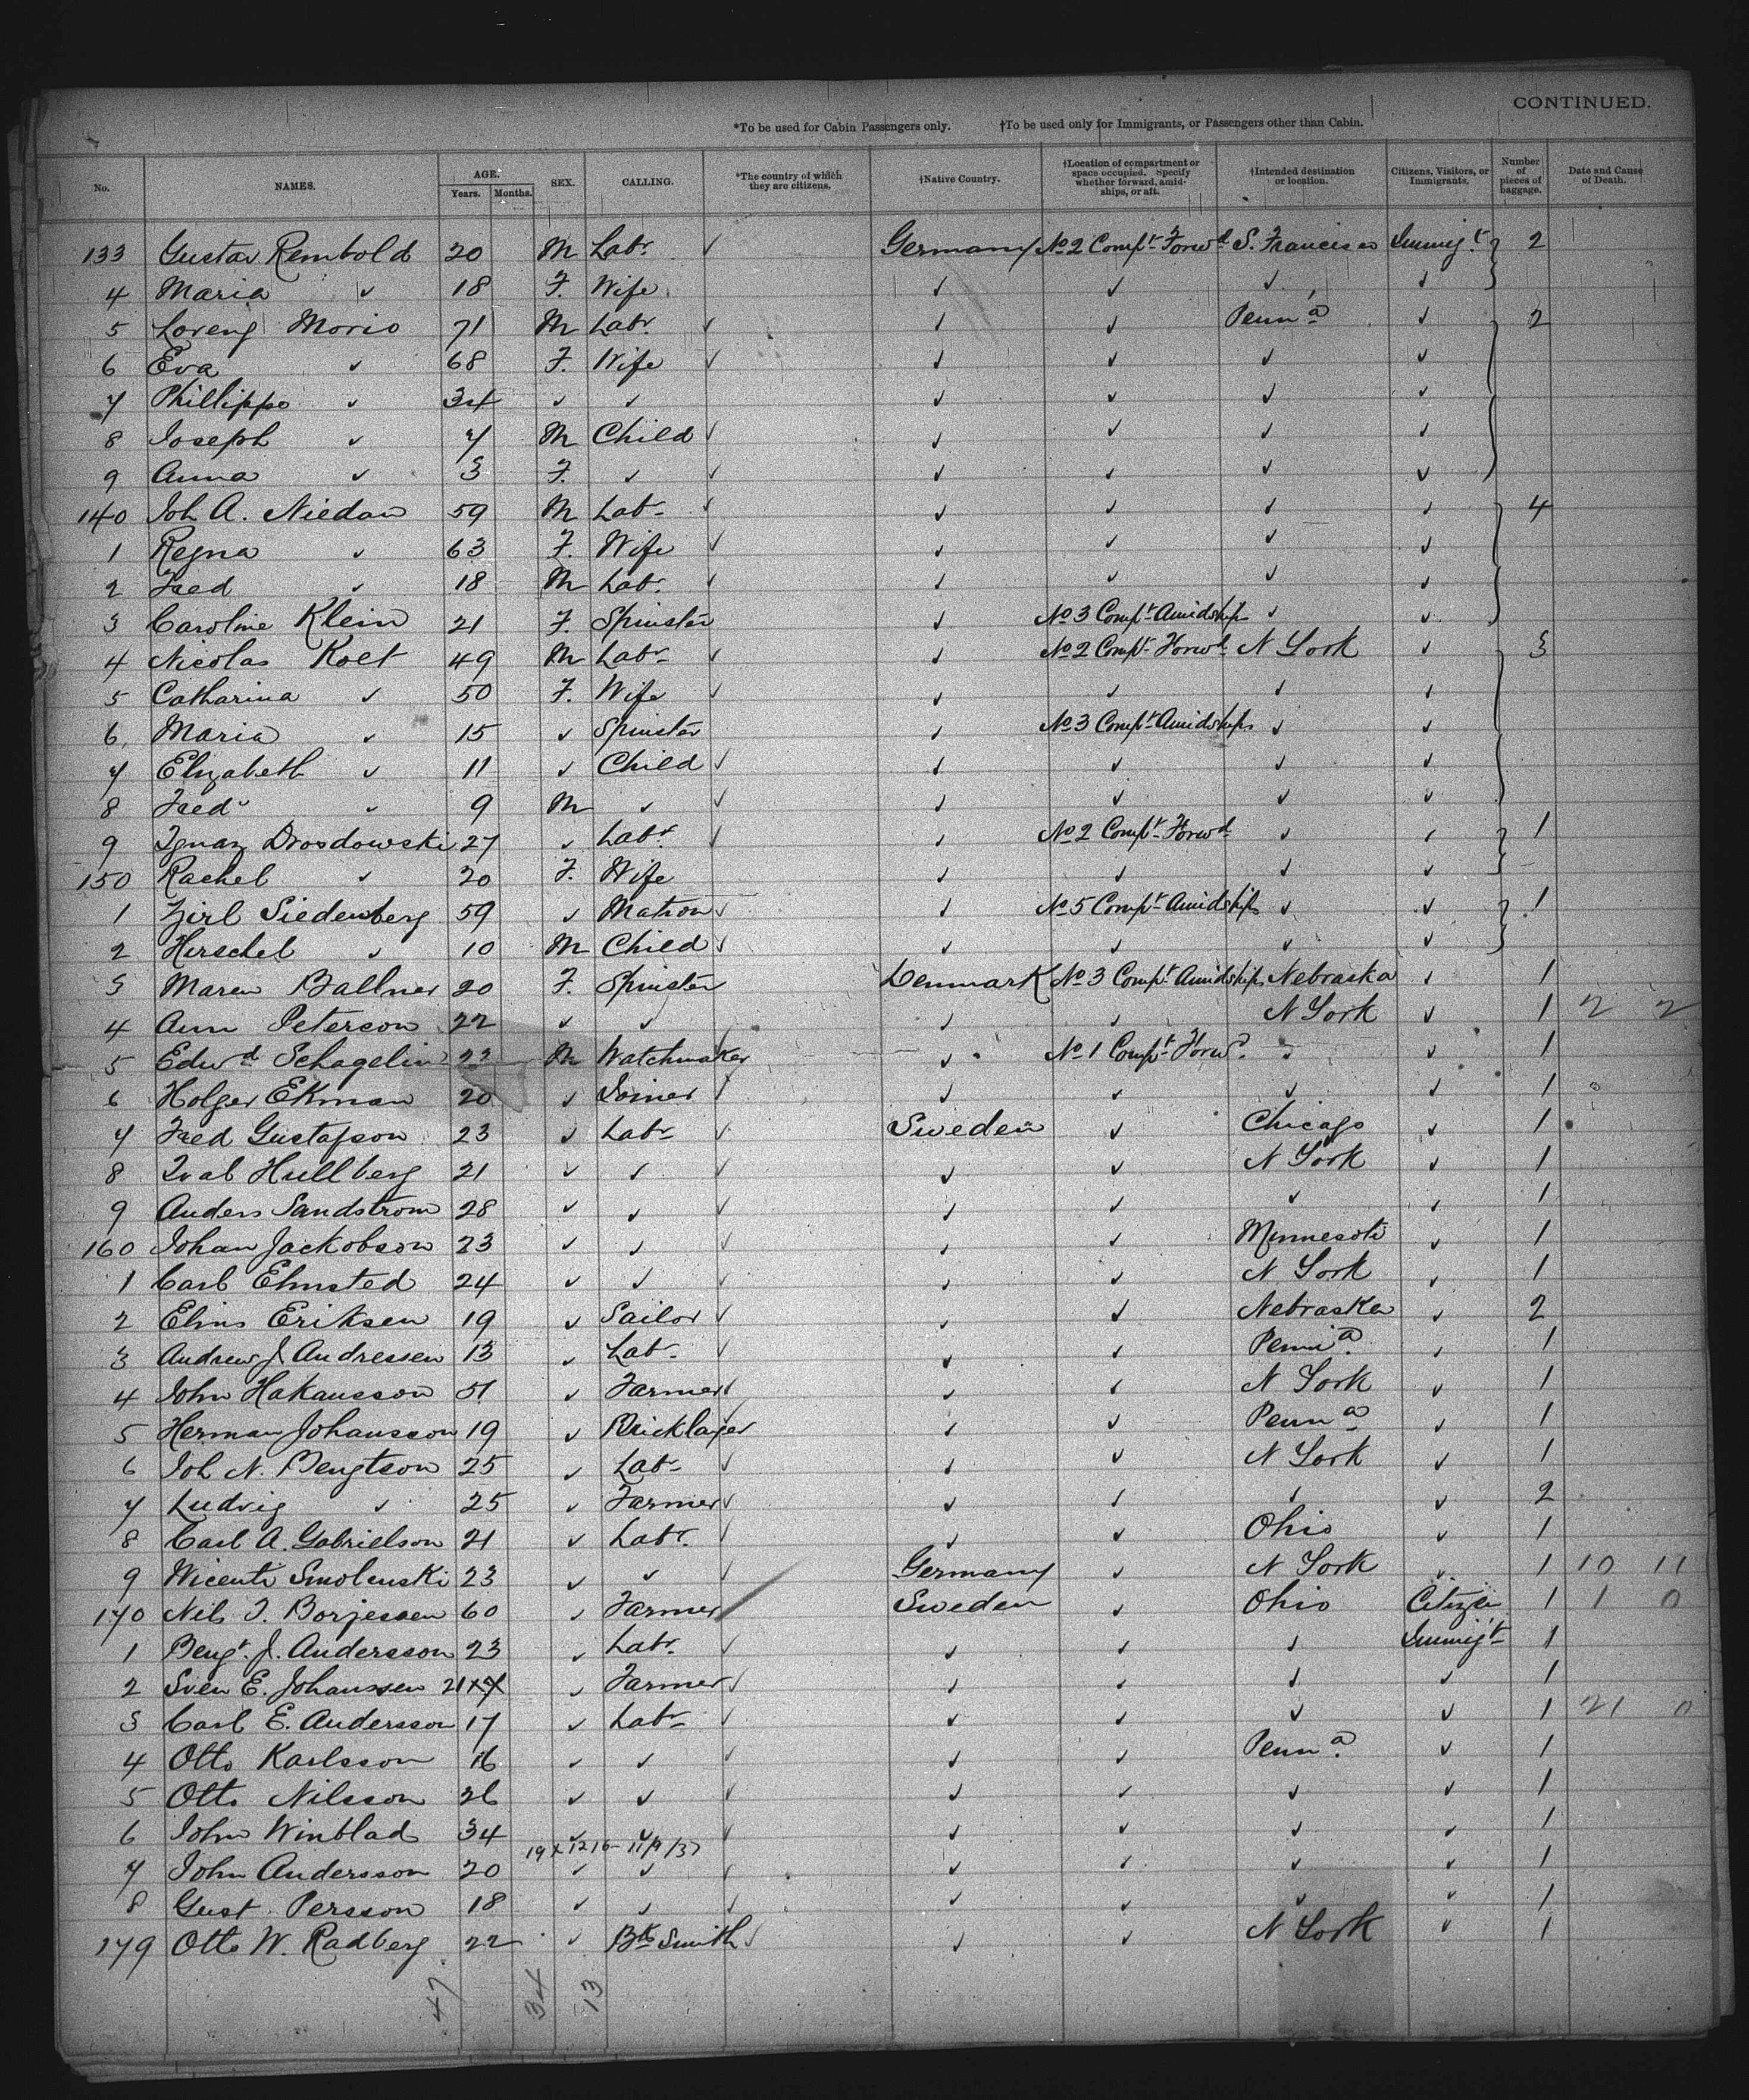 CONTINUED.
*To be used for Cabin Passengers only. †To be used only for Immigrants, or Passengers other than Cabin.
No. NAMES. AGE. Years. Months. SEX. CALLING. *The country of which they are citizens. †Native Country. †Location of compartment or space occupied. Specify whether forward, amidships, or aft. †Intended destination or location. Citizens, Visitors, or Immigrants. Number of pieces of baggage. Date and Cause of Death.
133 Gustav Rembold 20 M Labr. ✓ Germany No 2 Compt Forwd S. Francisco Immigt 2
4 Maria ✓ 18 F. Wife ✓ ✓ ✓ ✓
5 Lorenz Morio 71 M Labr. ✓ ✓ ✓ Penna ✓ 2
6 Eva ✓ 68 F. Wife ✓ ✓ ✓ ✓ ✓
7 Phillippe ✓ 34 ✓ ✓ ✓ ✓ ✓ ✓
8 Joseph ✓ 7 M Child ✓ ✓ ✓ ✓ ✓
9 Anna ✓ 3 F. ✓ ✓ ✓ ✓ ✓ ✓
140 Joh A. Niedan 59 M Labr ✓ ✓ ✓ ✓ ✓ 4
1 Regna ✓ 63 F. Wife ✓ ✓ ✓ ✓ ✓
2 Fred ✓ 18 M Labr. ✓ ✓ ✓ ✓ ✓
3 Caroline Klein 21 F. Spinster ✓ No 3 Compt Amidships ✓ ✓
4 Nicolas Kolt 49 M Labr ✓ ✓ No 2 Compt Forwd N York ✓ 3
5 Catharina ✓ 50 F. Wife ✓ ✓ ✓ ✓ ✓
6 Maria ✓ 15 ✓ Spinster ✓ No 3 Compt Amidships ✓ ✓
7 Elizabeth ✓ 11 ✓ Child ✓ ✓ ✓ ✓ ✓
8 Fred ✓ 9 M ✓ ✓ ✓ ✓ ✓ ✓
9 Ignaz Drosdowski 27 ✓ Labr ✓ ✓ No 2 Compt Forwd ✓ ✓ 1
150 Rachel ✓ 20 F. Wife ✓ ✓ ✓ ✓
1 Zirl Siedenberg 59 ✓ Matron ✓ ✓ No 5 Compt Amidships ✓ ✓ 1
2 Herschel ✓ 10 M Child ✓ ✓ ✓ ✓ ✓
3 Maren Ballner 20 F. Spinster Denmark No 3 Compt Amidships Nebraska ✓ 1
4 Ann Peterson 22 ✓ ✓ ✓ ✓ N York ✓ 1 2 2
5 Edwd Schagelin 23 M Watchmaker ✓ No 1 Compt Forwd. ✓ ✓ 1
6 Holger Ekman 20 ✓ Joiner ✓ ✓ ✓ ✓ ✓ 1
7 Fred Gustafson 23 ✓ Labr ✓ Sweden ✓ Chicago ✓ 1
8 Hullberg 21 ✓ ✓ ✓ ✓ ✓ N York ✓ 1
9 Anders Sandstrom 28 ✓ ✓ ✓ ✓ ✓ ✓ ✓ 1
160 Johan Jackobson 23 ✓ ✓ ✓ ✓ ✓ Minnesota ✓ 1
1 Carl Elmsted 24 ✓ ✓ ✓ ✓ ✓ N York ✓ 1
2 Elins Eriksen 19 ✓ Sailor ✓ ✓ ✓ Nebraska ✓ 2
3 Andrew J Andressen 13 ✓ Labr ✓ ✓ ✓ Penna. ✓ 1
4 John Hakansson 51 ✓ Farmer ✓ ✓ ✓ N York ✓ 1
5 Herman Johansson 19 ✓ Bricklayer ✓ ✓ Penna ✓ 1
6 Joh N. Bengtson 25 ✓ Labr ✓ ✓ ✓ N York ✓ 1
7 Ludvig ✓ 25 ✓ Farmer ✓ ✓ ✓ ✓ ✓ 2
8 Carl A. Gabrielson 21 ✓ Labr. ✓ ✓ ✓ Ohio ✓ 1
9 Wicenti Smolenski 23 ✓ ✓ ✓ Germany ✓ N York ✓ 1 10 11
170 Nils J. Borjessen 60 ✓ Farmer Sweden ✓ Ohio Citizen 1 1 0
1 Bengt. J. Andersson 23 ✓ Labr. ✓ ✓ ✓ ✓ Immigt 1
2 Sven E. Johanssen 21 ✓ Farmer ✓ ✓ ✓ ✓ ✓ 1
3 Carl E. Andersson 17 ✓ Labr ✓ ✓ ✓ ✓ ✓ 1 21 0
4 Otto Karlsson 16 ✓ ✓ ✓ ✓ ✓ Penna. ✓ 1
5 Otto Nilsson 26 ✓ ✓ ✓ ✓ ✓ ✓ ✓ 1
6 John Winblad 34 ✓ ✓ ✓ ✓ ✓ ✓ ✓ 1
19 x 1216 - 11/9/37
7 John Andersson 20 ✓ ✓ ✓ ✓ ✓ ✓ ✓ 1
8 Gust Persson 18 ✓ ✓ ✓ ✓ ✓ ✓ ✓ 1
179 Otto W. Radberg 22 ✓ Bk Smith ✓ ✓ ✓ N York ✓ 1
47 34 13